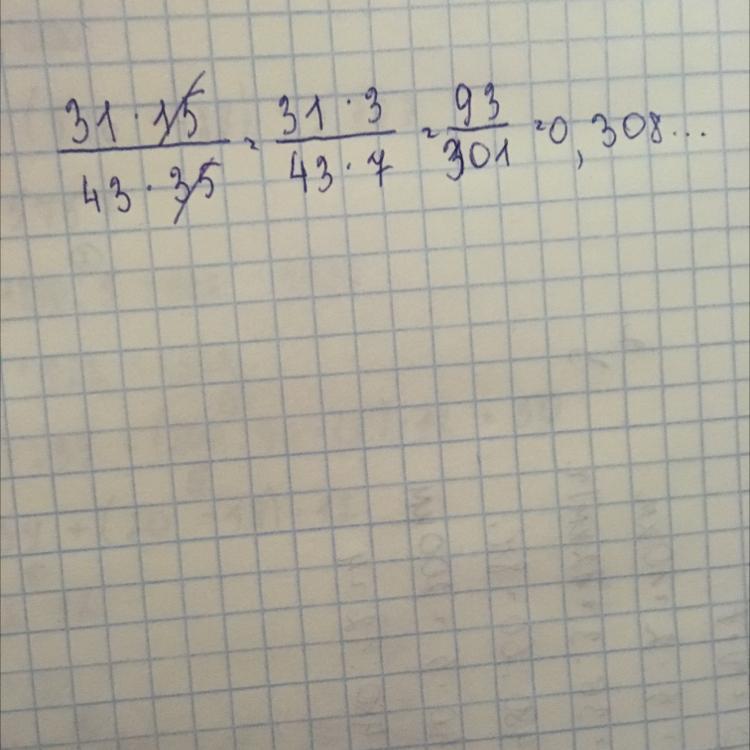 31 · 15 / 43 · 35 = 31 · 3 / 43 · 7 = 93 / 301 = 0,308...